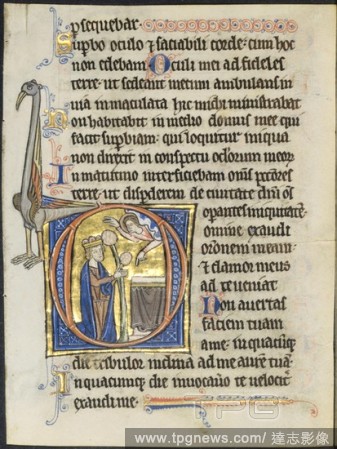 psequebar
Supbo oculo ⁊ saciabili corde: cum hoc
non edebam Oculi mei ad fideles
terre: ut sedeant mecum ambulans in
uia inmaculata hic michi ministrabat
Non habitabit in medio domus mee qui
facit supbiam: qui loquitur iniqua
non direxit in conspectu oculorum meorum
In matutino interficiebam omnes peccatores
terre: ut disperderem de ciuitate domini omnes
operantes iniquitatem
Domine exaudi
orationem meam:
⁊ clamor meus
ad te ueniat
Non auertas
faciem tuam
a me: in quacumque
die tribulor inclina ad me aurem tuam
In quacumque die inuocauero te uelociter
exaudi me.
TPG
www.tpgnews.com/ 達志影像